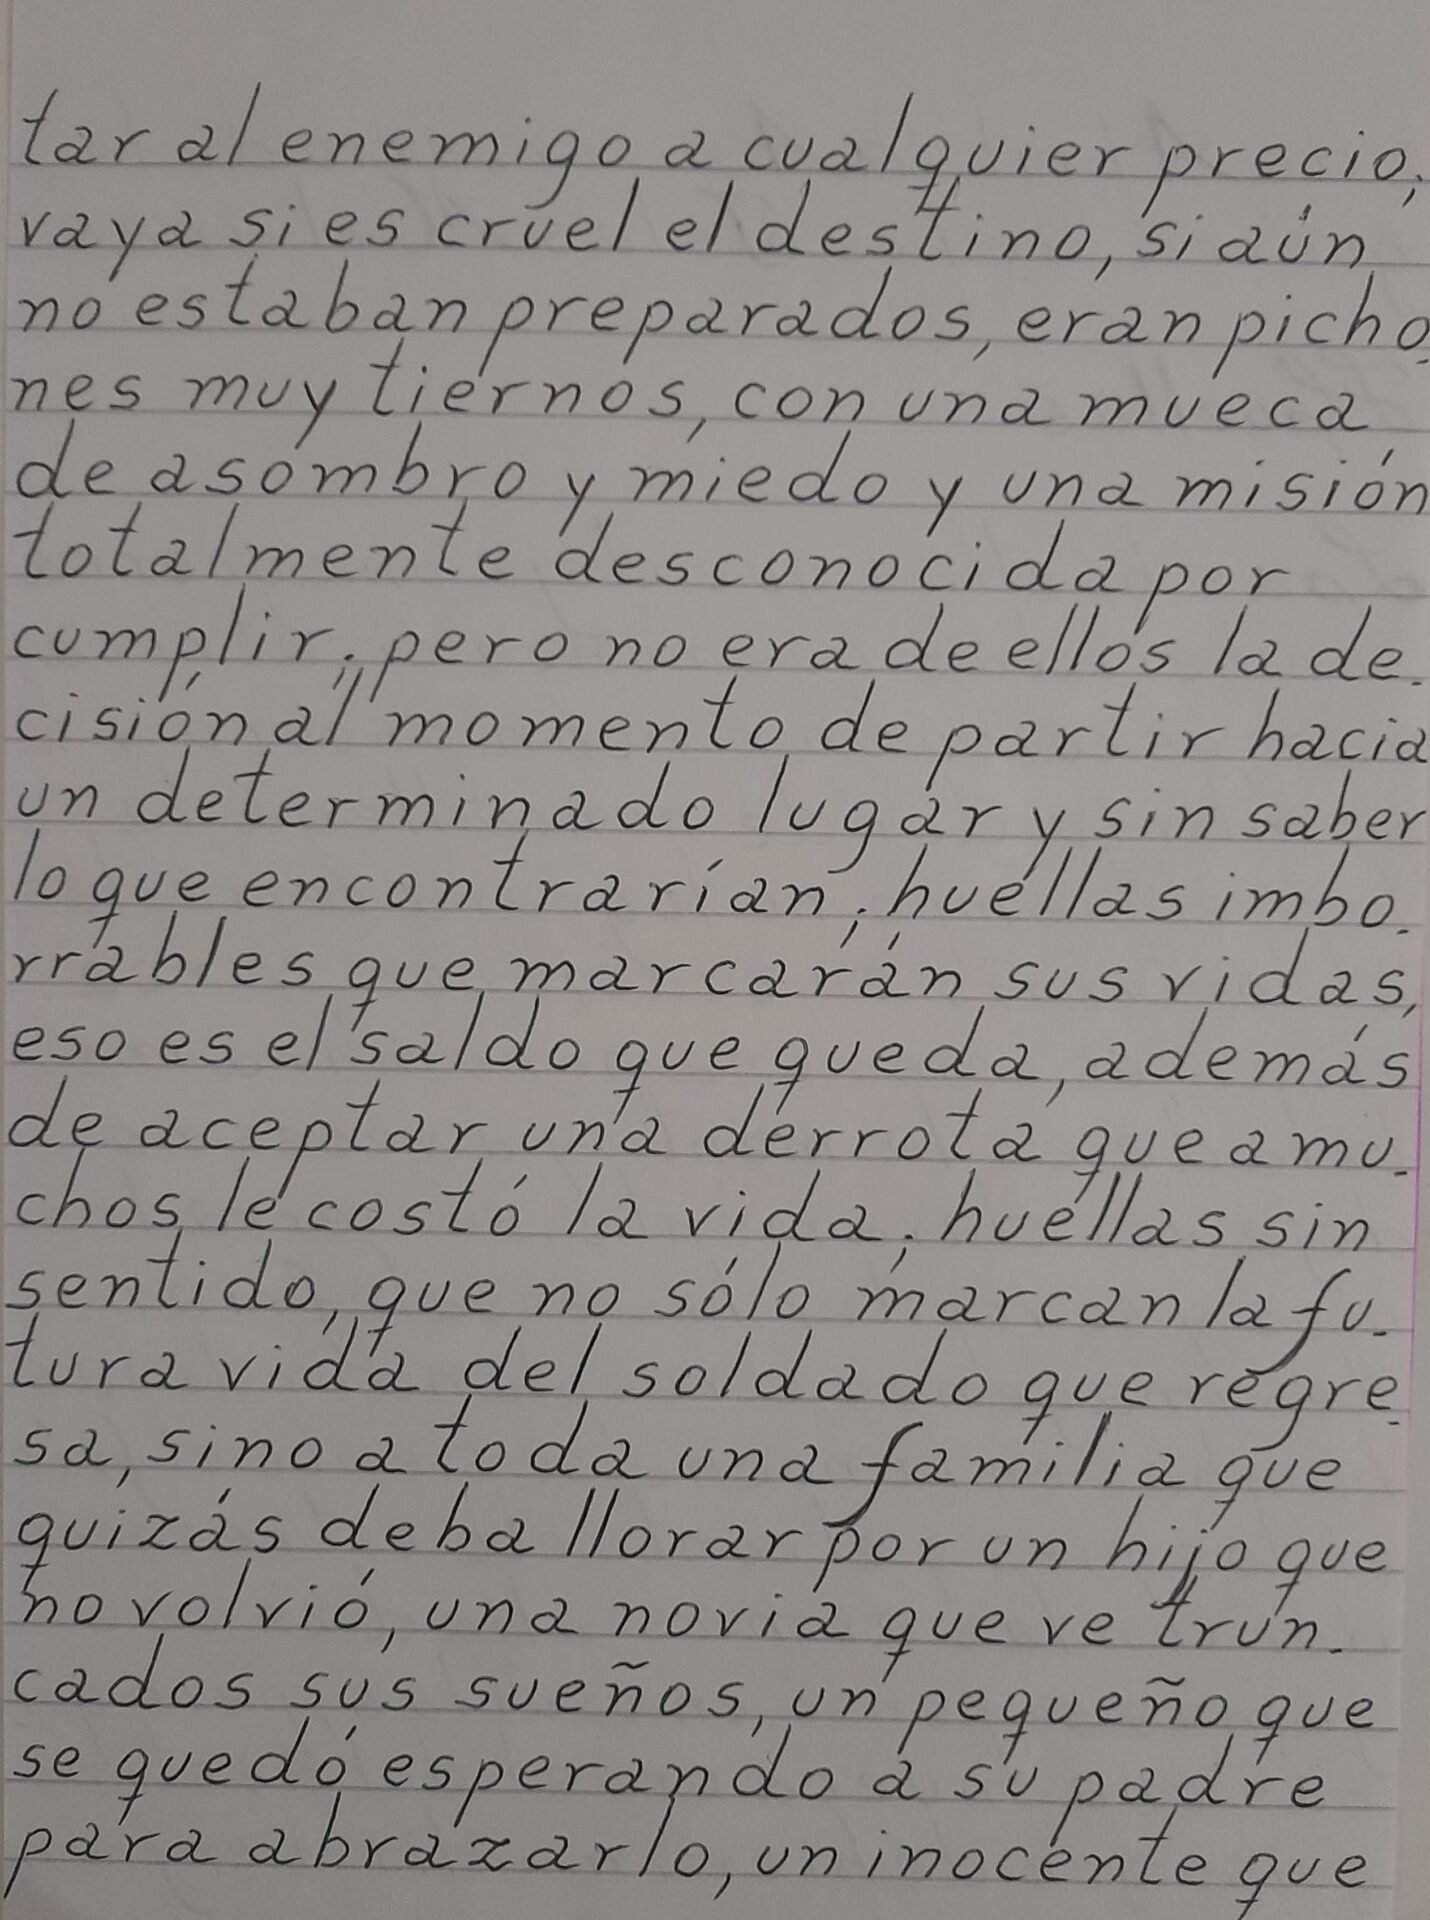 tar al enemigo a cualquier precio;
vaya si es cruel el destino, si aún
no estaban preparados, eran picho-
nes muy tiernos, con una mueca
de asombro y miedo y una misión
totalmente desconocida por
cumplir; pero no era de ellos la de-
cisión al momento de partir hacia
un determinado lugar y sin saber
lo que encontrarían; huellas imbo-
rrables que marcarán sus vidas,
eso es el saldo que queda, además
de aceptar una derrota que a mu-
chos le costó la vida; huellas sin
sentido, que no sólo marcan la fu-
tura vida del soldado que regre-
sa, sino a toda una familia que
quizás deba llorar por un hijo que
no volvió, una novia que ve trun-
cados sus sueños, un pequeño que
se quedó esperando a su padre
para abrazarlo, un inocente que